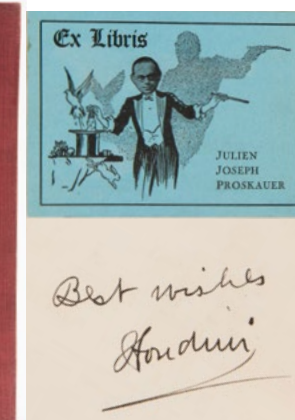 Ex Libris
JULIEN
JOSEPH
PROSKAUER
Best wishes
Houdini